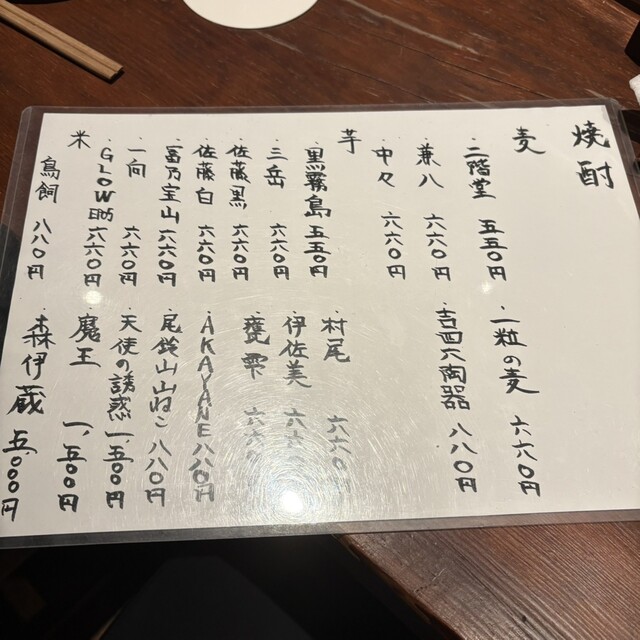 焼酎
麦
・二階堂 五五〇円
・兼八 六六〇円
・中々 六六〇円
・一粒の麦 六六〇円
・吉四六陶器 八八〇円
芋
・黒霧島 五五〇円
・三岳 六六〇円
・佐藤黒 六六〇円
・佐藤白 六六〇円
・冨乃宝山 六六〇円
・一向 六六〇円
・GLOW EP05 六六〇円
・村尾 六六〇円
・伊佐美 六六〇円
・甕雫 六六〇円
・AKAYANE 八八〇円
・尾鈴山山ねこ 八八〇円
・天使の誘惑 一、五〇〇円
・魔王 一、五〇〇円
・森伊蔵 五、〇〇〇円
米
・鳥飼 八八〇円